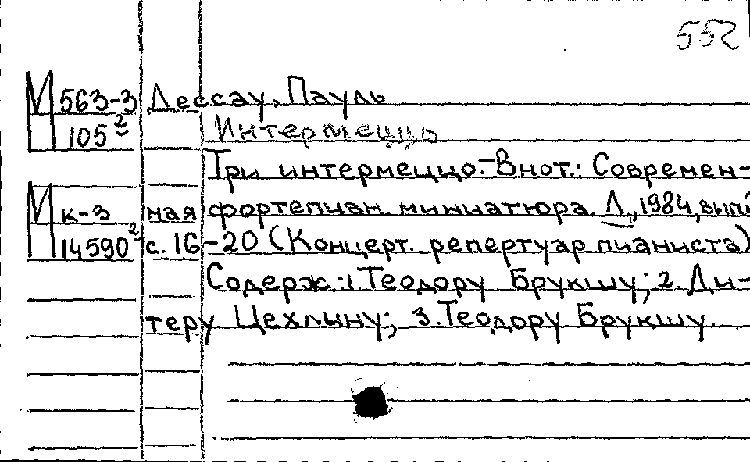 552
М 563-3 Дессау, Пауль
105² Интермеццо
Три интермеццо.- В нот.: Современ-
М к-3 ная фортепиан. миниатюра. Л., 1984, вып.
14590² с. 16-20 (Концерт. репертуар пианиста)
Содерж.: 1. Теодору Брукшу; 2. Ди-
теру Цехлину; 3. Теодору Брукшу.